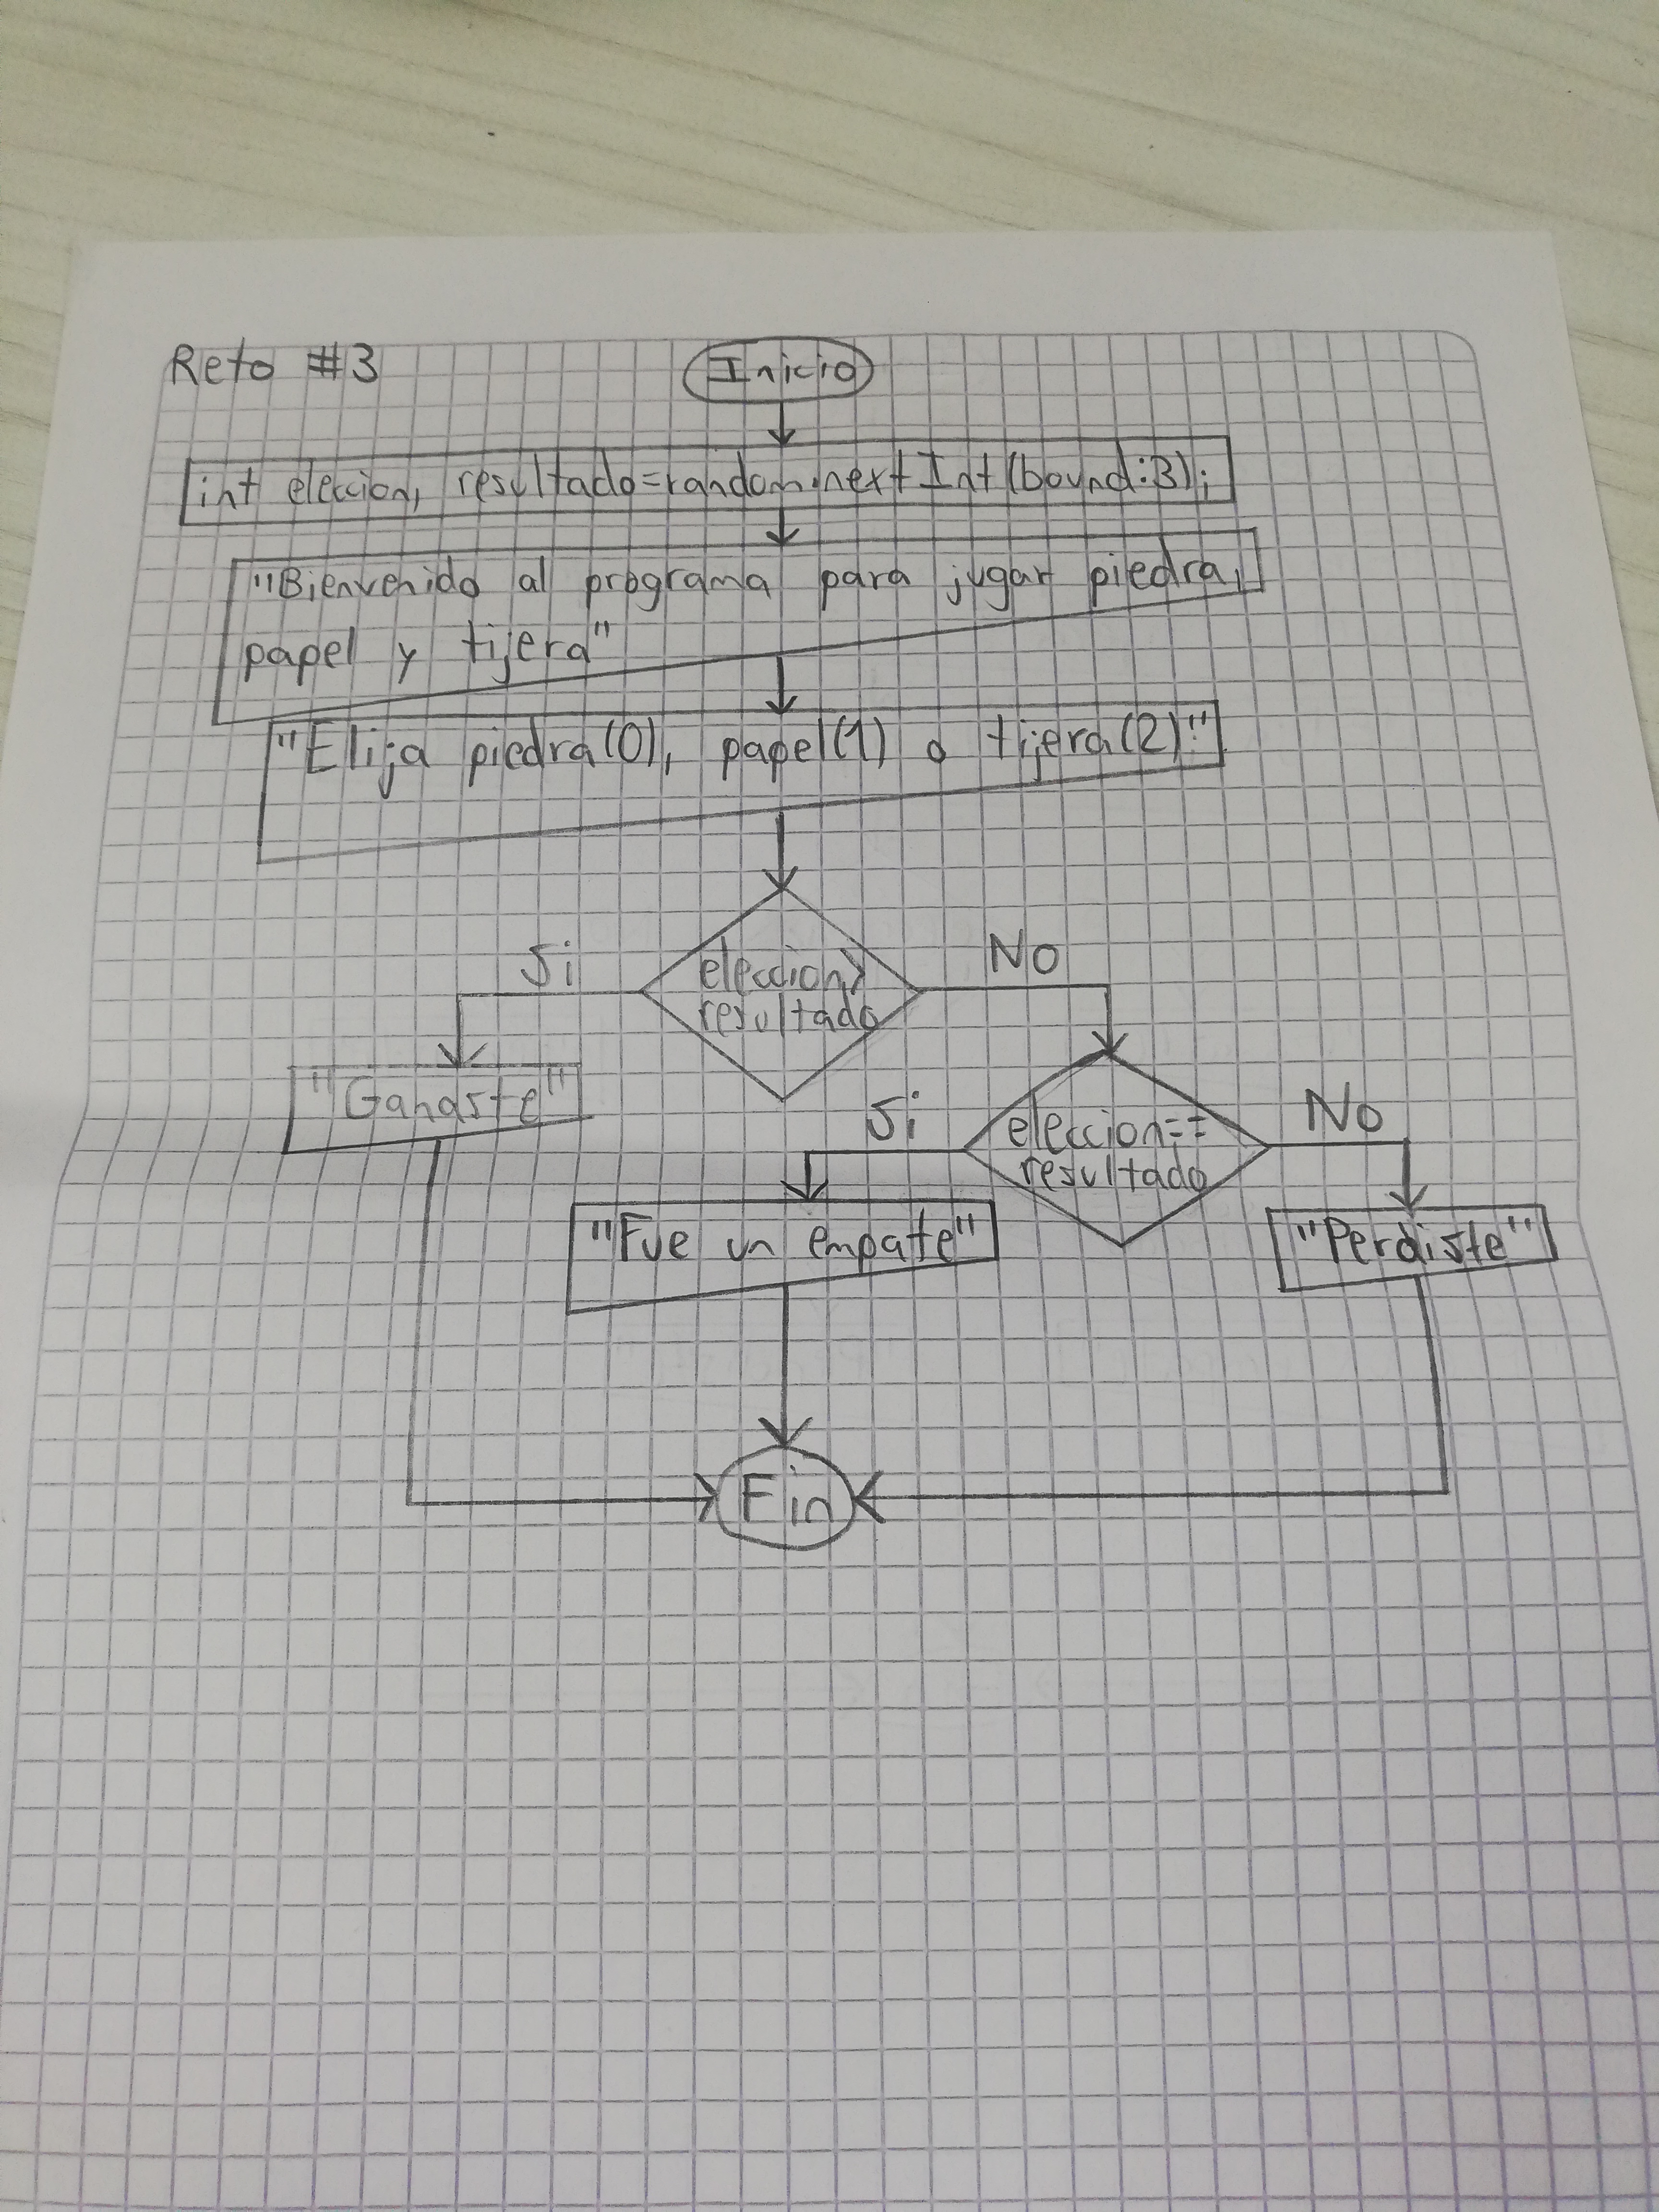 Reto #3
Inicio
int eleccion, resultado=random.nextInt(bound:3);
"Bienvenido al programa para jugar piedra,
papel y tijera"
"Elija piedra(0), papel(1) o tijera(2):"
eleccion>
resultado
Si
No
"Ganaste"
eleccion==
resultado
Si
No
"Fue un empate"
"Perdiste"
Fin